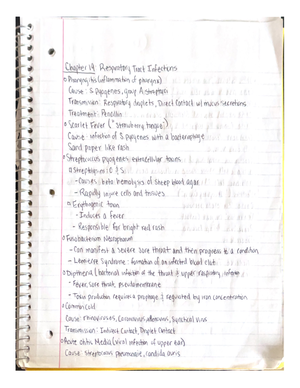 Chapter 14: Respiratory Tract Infections
Pharyngitis (inflammation of pharynx)
Cause: S pyogenes, group A strep
Transmission: Respiratory droplets, Direct Contact w/ mucus secretions
Treatment: Penicillin
Scarlet Fever ("strawberry tongue")
Cause: infection of S pyogenes with a bacteriophage
Sand paper like rash
Streptococcus pyogenes extracellular toxins
Streptolysin O & S:
- Causes beta hemolysis of sheep blood agar
- Rapidly injure cells and tissues
Erythrogenic toxin
- Induces a fever
- Responsible for bright red rash
Fusobacterium Necrophorum
- Can manifest a severe sore throat and then progress to a condition
- Lemierre Syndrome: formation of an infected blood clot
Diptheria (bacterial infection of the throat & upper respiratory
- Fever, sore throat, pseudomembrane
- Toxin production requires a prophage & regulated by iron concentration
Common cold
Cause: rhinovirus, Coronavirus, adenovirus, Syncitial virus
Transmission: Indirect Contact, Droplet Contact
Acute Otitis Media (viral infection of upper ear)
Cause: streptococcus pneumoniae, candida auris